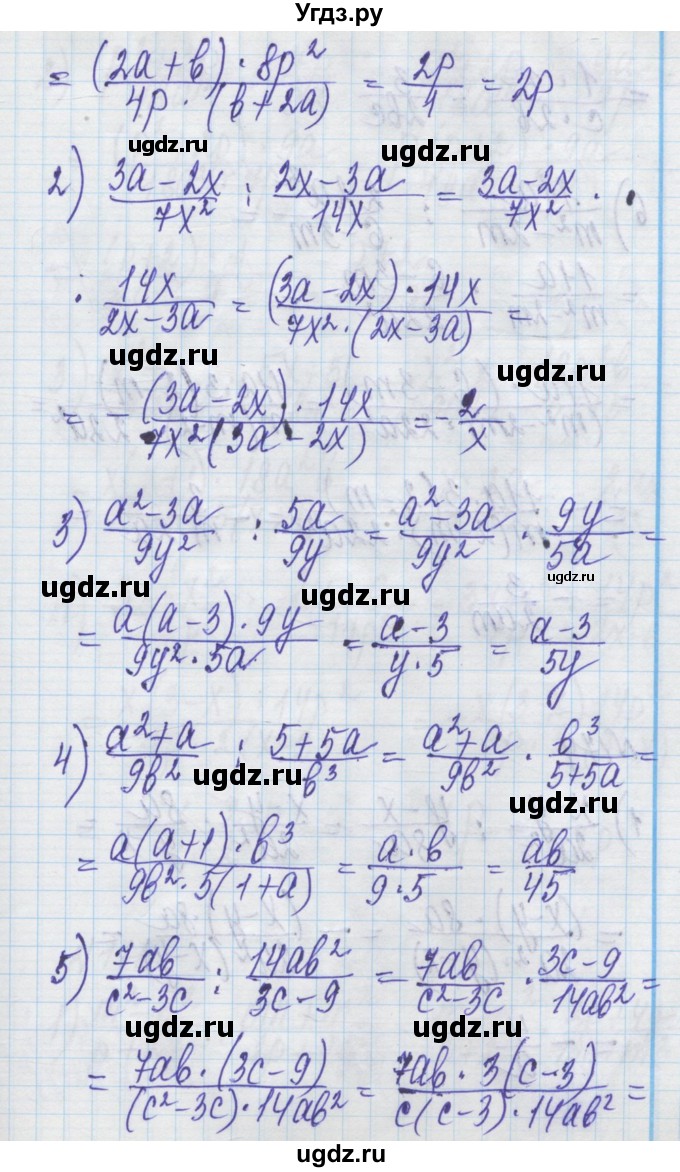 Угдз.ру
= ((2a+b)·8p²)/(4p·(b+2a)) = 2p/4 = 2p
ugdz.ru ugdz.ru
2) (3a-2x)/(7x²) : (2x-3a)/(14x) = (3a-2x)/(7x²) ·
· (14x)/(2x-3a) = ((3a-2x)·14x)/(7x²·(2x-3a)) =
ugdz.ru ugdz.ru
= - ((3a-2x)·14x)/(7x²(3a-2x)) = - 2/x
3) (a²-3a)/(9y²) : (5a)/(9y) = (a²-3a)/(9y²) · (9y)/(5a) =
ugdz.ru ugdz.ru ugdz.ru
= (a(a-3)·9y)/(9y²·5a) = (a-3)/(y·5) = (a-3)/(5y)
4) (a²+a)/(9b²) : (5+5a)/(b³) = (a²+a)/(9b²) · (b³)/(5+5a) =
ugdz.ru ugdz.ru
= (a(a+1)·b³)/(9b²·5(1+a)) = (a·b)/(9·5) = (ab)/45
5) (7ab)/(c²-3c) : (14ab²)/(3c-9) = (7ab)/(c²-3c) · (3c-9)/(14ab²) =
ugdz.ru ugdz.ru
= (7ab·(3c-9))/((c²-3c)·14ab²) = (7ab·3(c-3))/(c(c-3)·14ab²) =
ugdz.ru ugdz.ru